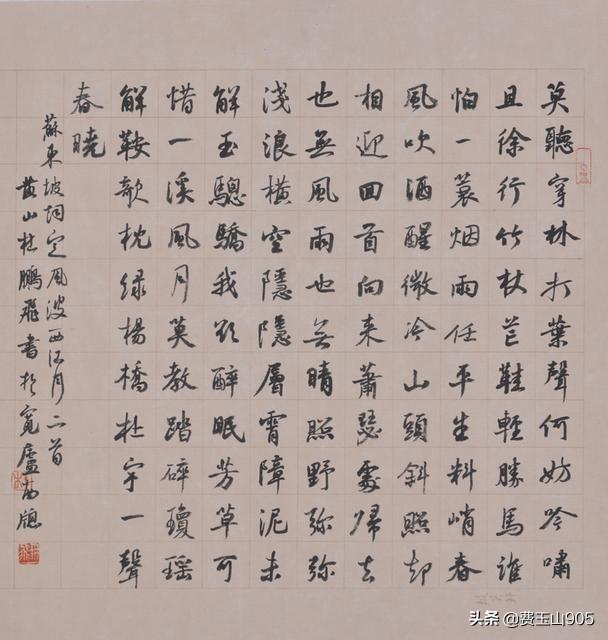 莫聽穿林打葉聲何妨吟嘯
且徐行竹杖芒鞋輕勝馬誰
怕一蓑烟雨任平生料峭春
風吹酒醒微冷山頭斜照却
相迎回首向來蕭瑟處歸去
也無風雨也无晴照野弥弥
淺浪橫空隱隱層霄障泥未
解玉驄驕我欲醉眠芳草可
惜一溪風月莫教踏碎瓊瑶
解鞍欹枕绿楊橋杜宇一聲
春曉
蘇東坡詞定風波西江月二首
黄山杜鵬飛書於寬廬南牕
头条 @费玉山905